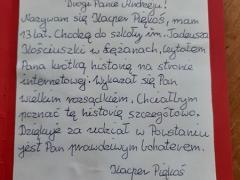 Drogi Panie Andrzeju!
Nazywam się Kacper Piękoś, mam
13 lat. Chodzę do szkoły im. Tadeusza
Kościuszki w Bęzanach. Czytałem
Pana krótką historię na stronie
internetowej. Wykazał się Pan
wielkim rozsądkiem. Chciałbym
poznać tę historię szczegółowo.
Dziękuję za udział w Powstaniu
jest Pan prawdziwym bohaterem.
Kacper Piękoś